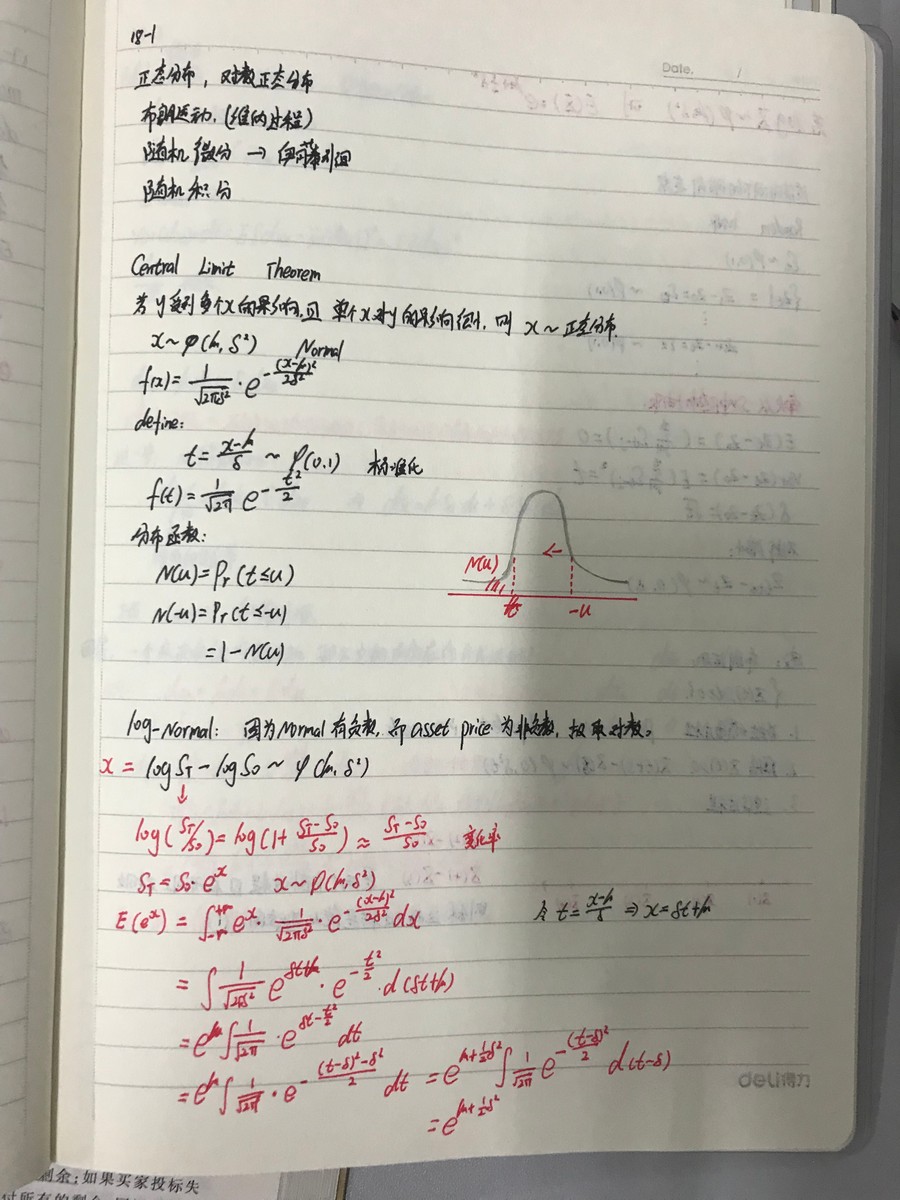 18-1
Date. /
正态分布，对数正态分布
布朗运动.(维纳过程)
随机微分 → 伊藤引理
随机积分
Central Limit Theorem
若y受到多个x的影响,且 单个x对y的影响很小, 则 x ~ 正态分布.
x ~ φ(μ, δ²) Normal
f(x) = 1/√(2πδ²) · e^(-(x-μ)²/2δ²)
define:
t = (x-μ)/δ ~ φ(0,1) 标准化
f(t) = 1/√(2π) e^(-t²/2)
分布函数:
N(u) = Pr(t≤u)
N(-u) = Pr(t≤-u)
= 1-N(u)
N(u)
-u
log-Normal: 因为Normal有负数, 而asset price 为非负数, 故取对数。
x = log S_T - log S_0 ~ φ(μ, δ²)
↓
log(S_T/S_0) = log(1+ (S_T-S_0)/S_0) ≈ (S_T-S_0)/S_0 变化率
S_T = S_0 · e^x x ~ φ(μ, δ²)
E(e^x) = ∫_{-∞}^{+∞} e^x · 1/√(2πδ²) · e^(-(x-μ)²/2δ²) dx 令 t = (x-μ)/δ ⇒ x = δt+μ
= ∫ 1/√(2πδ²) e^(δt+μ) · e^(-t²/2) · d(δt+μ)
= e^μ ∫ 1/√(2π) · e^(δt-t²/2) dt
= e^μ ∫ 1/√(2π) · e^(-((t-δ)²-δ²)/2) dt = e^(μ+½δ²) ∫ 1/√(2π) e^(-(t-δ)²/2) d(t-δ)
= e^(μ+½δ²)
deli得力
剩余;如果买家投标失